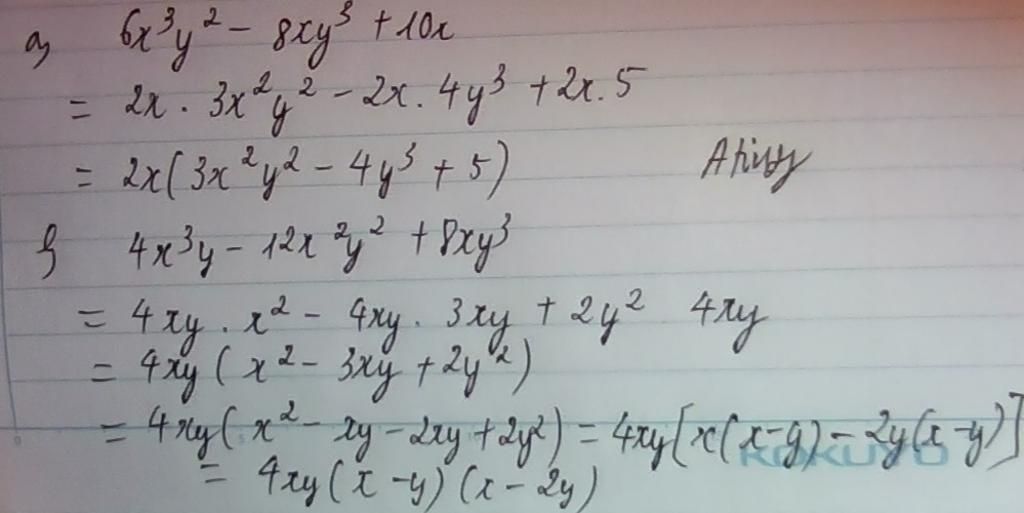 a) 6x³y² - 8xy³ + 10x
= 2x . 3x²y² - 2x . 4y³ + 2x . 5
= 2x(3x²y² - 4y³ + 5)
4x³y - 12x²y² + 8xy³
= 4xy . x² - 4xy . 3xy + 2y² 4xy
= 4xy (x² - 3xy + 2y²)
= 4xy(x² - xy - 2xy + 2y²) = 4xy[x(x-y) - 2y(x-y)]
KOKUYO
= 4xy(x-y)(x-2y)